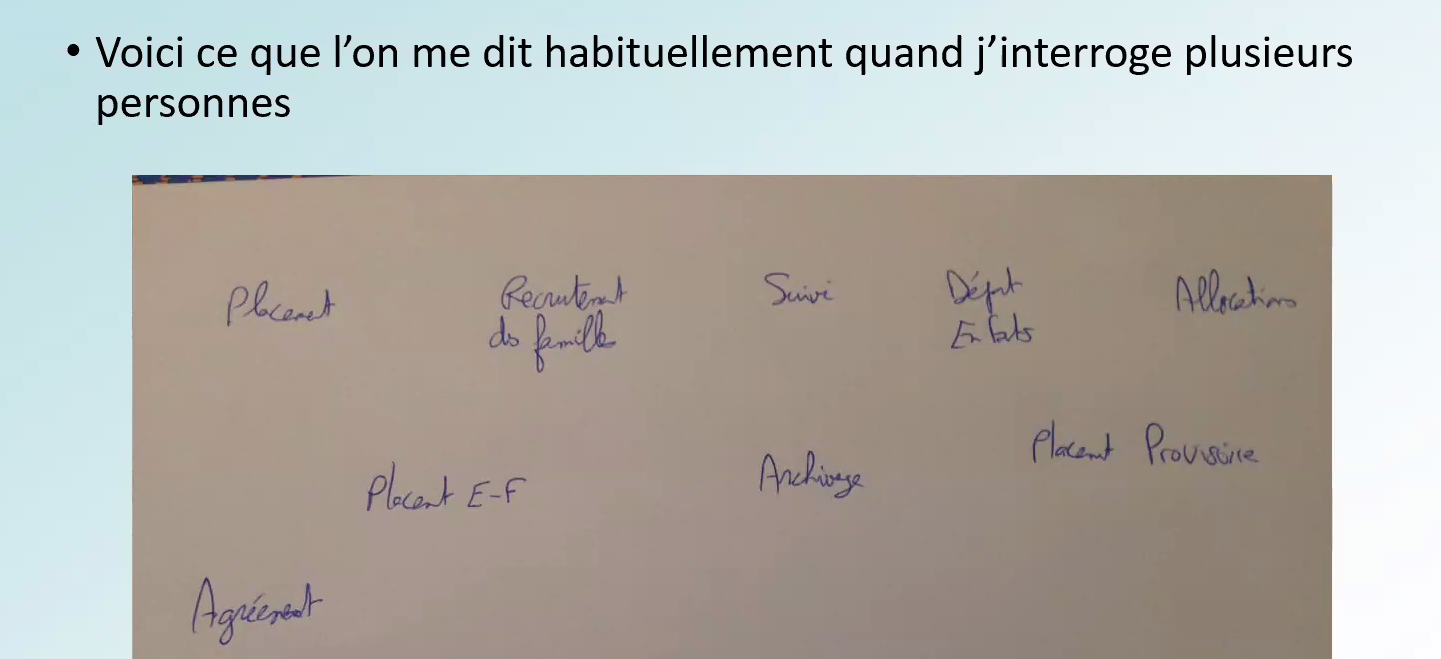 • Voici ce que l’on me dit habituellement quand j’interroge plusieurs
personnes
Placement
Recrutement
des famille
Suivi
Départ
Enfants
Allocations
Placement E-F
Archivage
Placement Provisoire
Agrément